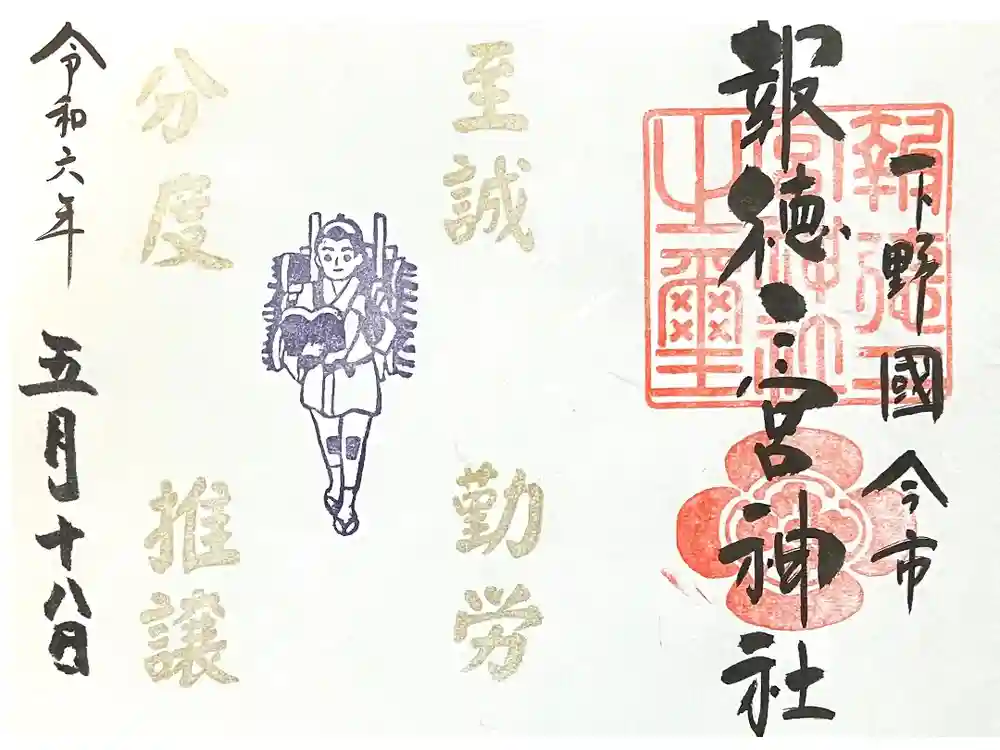 下野國 今市
報徳二宮神社
報徳二
宮神社
之璽
至誠
勤労
分度
推譲
令和六年
五月十八日